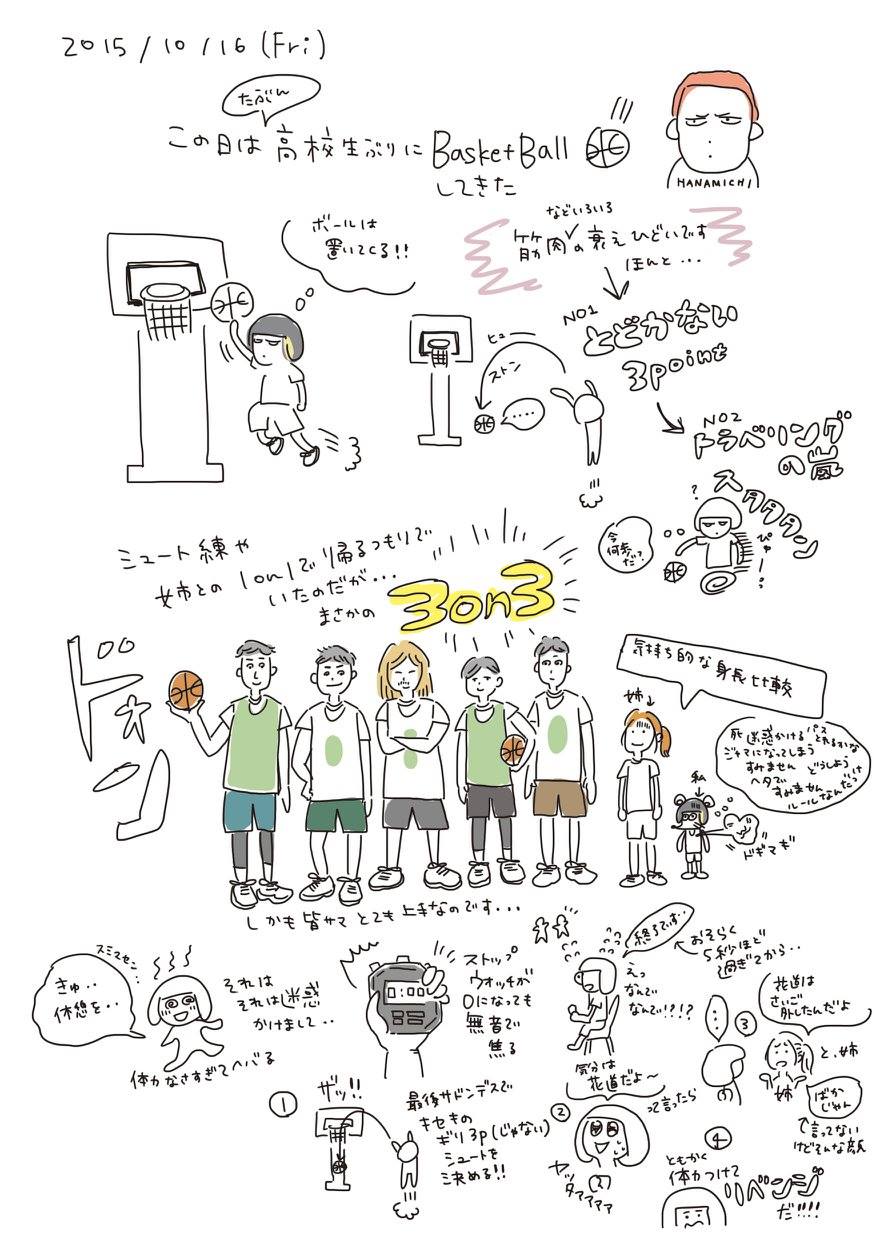 2015/10/16(Fri)
たぶん
この日は高校生ぶりにBasketBall
してきた
HANAMICHI
ボールは
置いてくる!!
などいろいろ
筋肉の衰えひどいです
ほんと...
NO1
とどかない
3point
ヒュー
ストン
....
NO2
トラベリング
の嵐
スタタタタン
?
今
何歩って
だ!
ぴゅー!
シュート練や
姉との1on1で帰るつもりで
いたのだが...
まさかの
3on3
ドォォン
気持ち的な身長比較
姉
私
死 迷惑かけるパスとれるかな
ジャマになってしまう
すみません どうしよう
ヘタで
すみません
ルールなんだっけ
ドギマギ
しかも皆サマとても上手なのです...
スミマセン..
きゅ..
休憩を..
それは
それは迷惑
かけまして..
体力なさすぎてヘバる
0:00
ストップ
ウォッチが
0になっても
無音で
焦る
終了です..
おそらく
5秒ほど
過ぎてから..
えっ
なんで
なんで!?!?
①
ザッ!!
最後サドンデスで
キセキの
ギリ3p(じゃない)
シュートを
決める!!
②
気分は
花道だよ〜
って言ったら
ヤッ
タァァァァ
③
...
花道は
さいご
外したんだよ
と、姉
姉
ばか
じゃん
言ってない
けどそんな顔
④
ともかく
体力つけて
リベンジ
だ!!!!